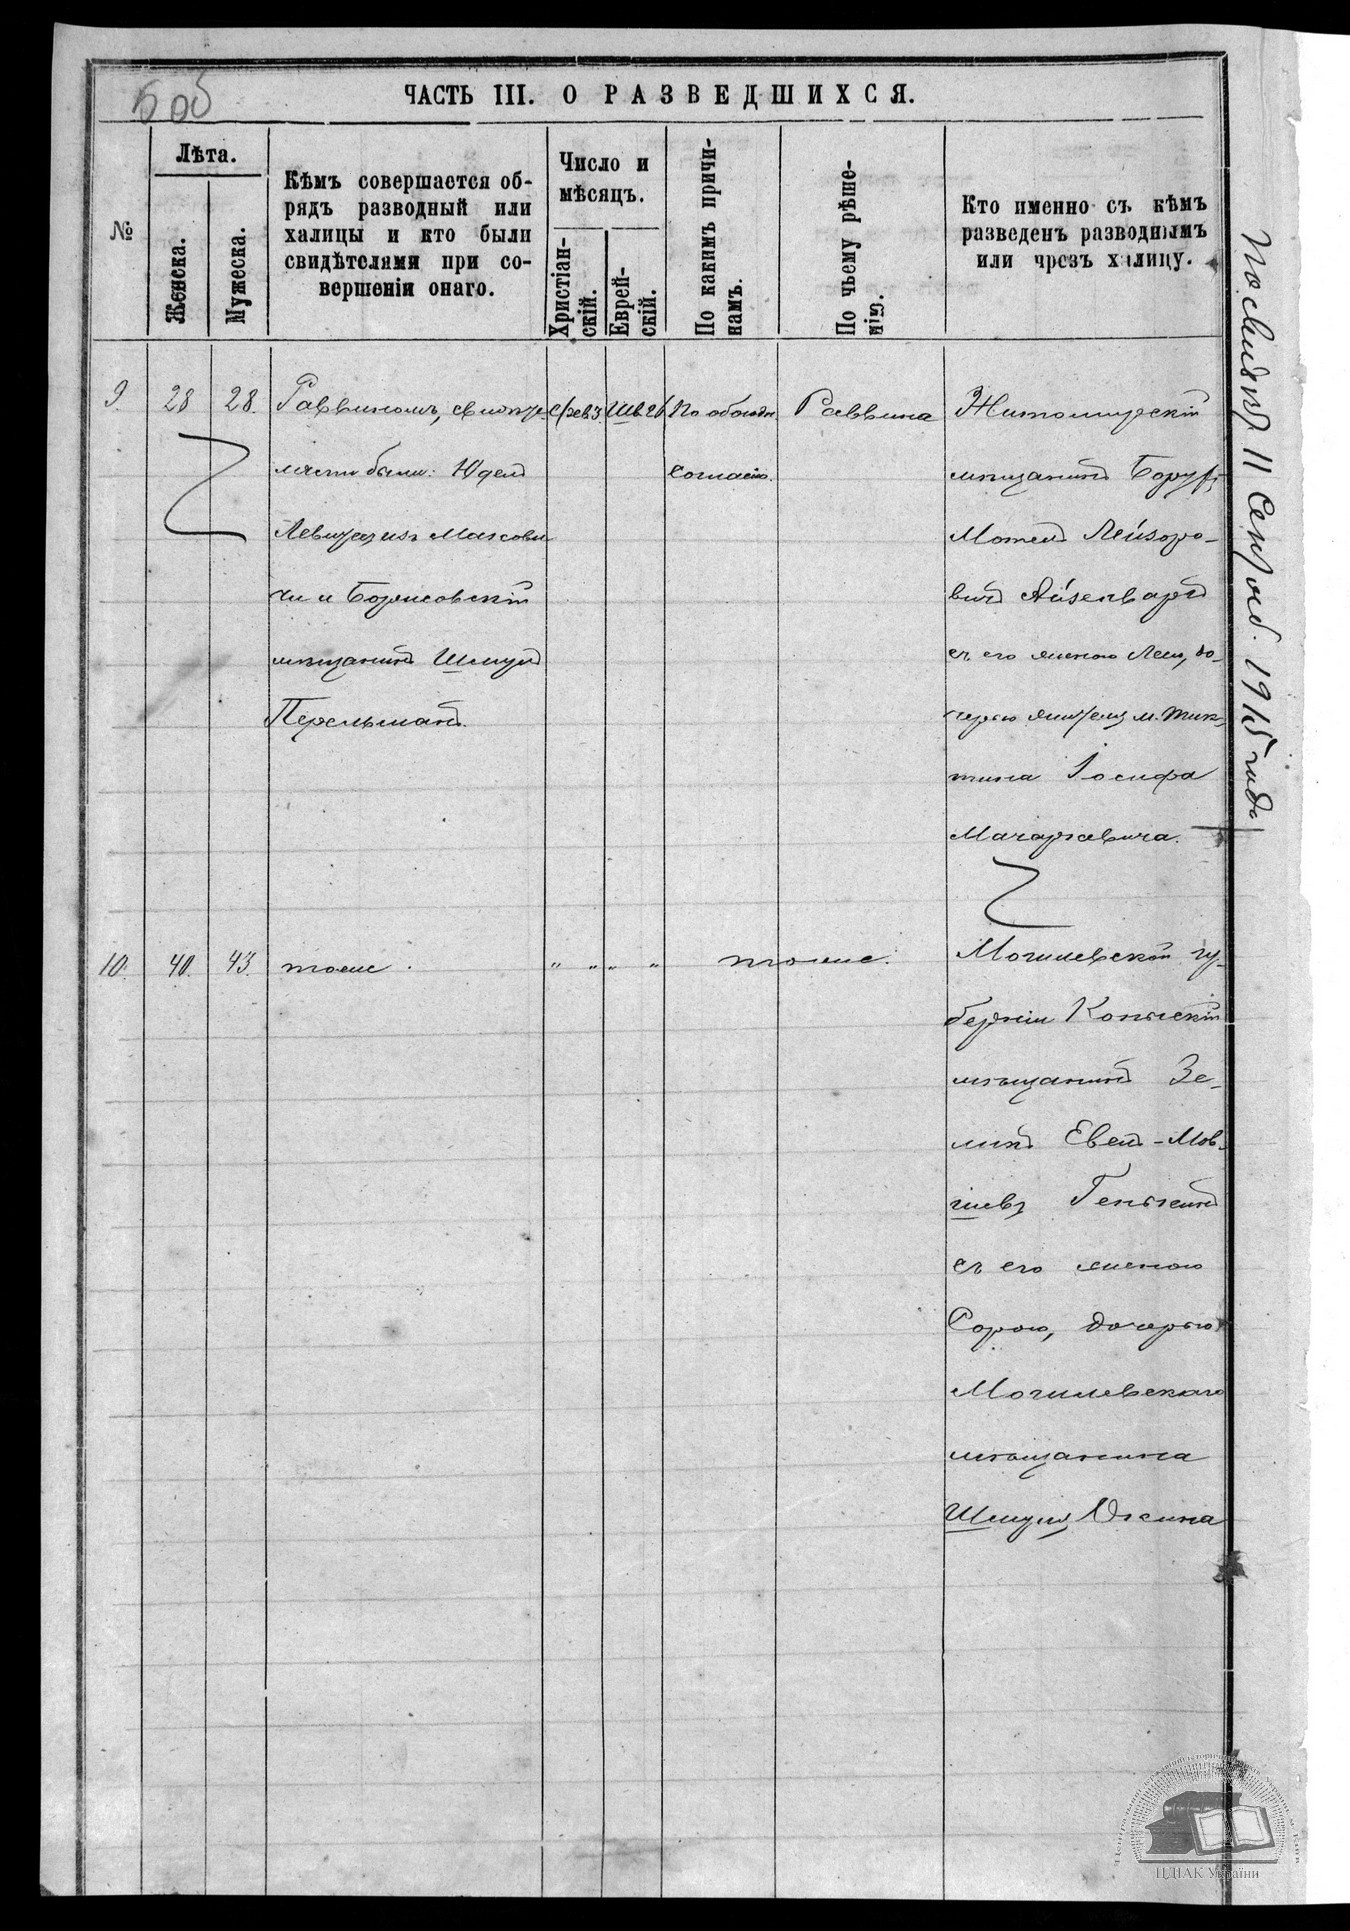 5 об
ЧАСТЬ III. О РАЗВЕДШИХСЯ.
№
Лѣта.
Женска.
Мужеска.
Кѣмъ совершается об-
рядъ разводный или
халицы и кто были
свидѣтелями при со-
вершеніи онаго.
Число и
мѣсяцъ.
Христіан-
скій.
Еврей-
скій.
По какимъ причи-
намъ.
По чьему рѣше-
нію.
Кто именно съ кѣмъ
разведенъ разводнымъ
или чрезъ халицу.
9.
28
28.
Раввиномъ, свидѣте-
лями были: Юдель
и Борисовскій
мѣщанинъ Шмуль
Перельманъ.
Февр. 3.
Шв. 26
По обоюдн.
согласію.
Раввина
Житомирскій
мѣщанинъ Борухъ
Мотель Лейзоро-
вичъ Айзенбергъ
съ его женою Леи, до-
черью м. Тик-
тина Іосифа
10.
40.
43.
тоже.
" " " "
тоже.
Могилевской гу-
берніи Копысскій
мѣщанинъ Зе-
ликъ Евель-Мов-
шевъ Генькинъ
съ его женою
Сорою, дочерью
Могилевскаго
мѣщанина
Шмуля
По свидѣт. 11 Сентяб. 1915 года
ЦДІАК України